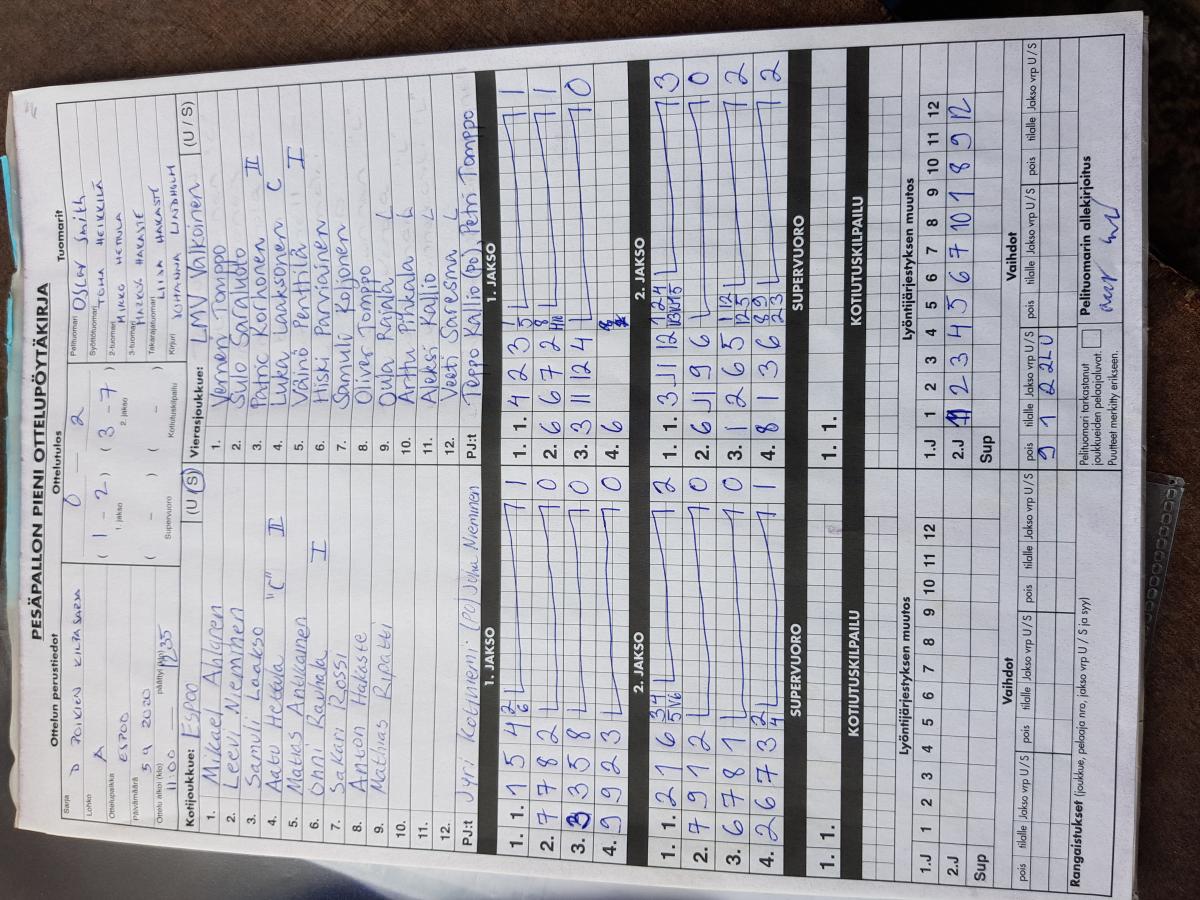 PESÄPALLON PIENI OTTELUPÖYTÄKIRJA
Ottelun perustiedot
Sarja D POIKIEN KILTA SARJA
Lohko A
Ottelupaikka ESPOO
Päivämäärä 5 9 2020
Ottelu alkoi (klo) 11:00 päättyi (klo) 12 35
Ottelutulos
0 - 2
( 1 - 2 ) ( 3 - 7 )
1. jakso 2. jakso
( - ) ( - )
Supervuoro Kotiutuskilpailu
Tuomarit
Pelituomari Smith
Syöttötuomari TUHA HEIKKILÄ
2-tuomari MIKKO HETULA
3-tuomari HAKASTE
Takarajatuomari LIISA HAKASTE
Kirjuri JOHANNA LINDHOLM
Kotijoukkue: Espoo (U / S)
1. Mikael Ahlqinen
2. Leevi Nieminen
3. Samuli Laakso
4. Aatu Hetula "C" II
5. Matias Anukainen
6. Onni Rauhala I
7. Sakari Rossi
8. Anton Hakaste
9. Mathias Ripatti
10.
11.
12.
PJ:t Jyri Kotiniemi (PO) Juha Nieminen
Vierasjoukkue: LMV Valkoinen (U / S)
1. Verneri Tomppo
2. Sulo Saraluoto
3. Patric Korhonen II
4. Luka Laaksonen C
5. Väinö Penttilä I
6. Hiski Parviainen
7. Samuli Koljonen
8. Oliver Tomppo
9. Oula Rajala L
10. Arttu Pitkälä L
11. Aleksi Kallio L
12. Veeti Saresma L
PJ:t Teppo Kallio (PO), Petri Tomppo
1. JAKSO
1. 1. 1 5 4 2 6 1
2. 7 7 8 2 0
3. 3 3 5 8 0
4. 9 9 2 3 0
1. JAKSO
1. 1. 4 2 3 5 1
2. 6 6 7 2 8 1
3. 3 11 12 4 1 0
4. 6
2. JAKSO
1. 1. 2 1 6 3 4 5 2
2. 7 9 1 2 0
3. 6 7 8 1 0
4. 2 6 7 3 2 4 1
2. JAKSO
1. 1. 3 11 12 1 2 4 3
2. 6 9 6 0
3. 1 2 6 5 2
4. 8 1 3 6 8 9 2 3 2
SUPERVUORO
1. 1.
SUPERVUORO
1. 1.
KOTIUTUSKILPAILU
KOTIUTUSKILPAILU
Lyöntijärjestyksen muutos
1.J 1 2 3 4 5 6 7 8 9 10 11 12
2.J
Sup
Lyöntijärjestyksen muutos
1.J 1 2 3 4 5 6 7 8 9 10 11 12
2.J 11 2 3 4 5 6 7 10 1 8 9 12
Sup
Vaihdot
pois tilalle Jakso vrp U / S pois tilalle Jakso vrp U / S pois tilalle Jakso vrp U / S
Vaihdot
pois tilalle Jakso vrp U / S pois tilalle Jakso vrp U / S pois tilalle Jakso vrp U / S
9 1 2 2LU
Rangaistukset (joukkue, pelaaja nro, jakso vrp U / S ja syy)
Pelituomari tarkastanut
joukkueiden pelaajaluvat.
Puutteet merkitty erikseen.
Pelituomarin allekirjoitus